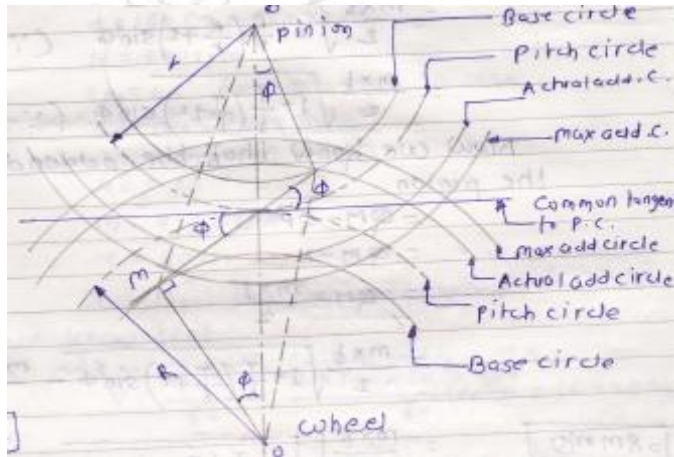 Base circle
pinion
pitch circle
r
Actual add. c.
Φ
max add c.
Φ
Common tangen
to p.c.
Φ
max add circle
m
Actual add circle
pitch circle
R
Base circle
Φ
wheel